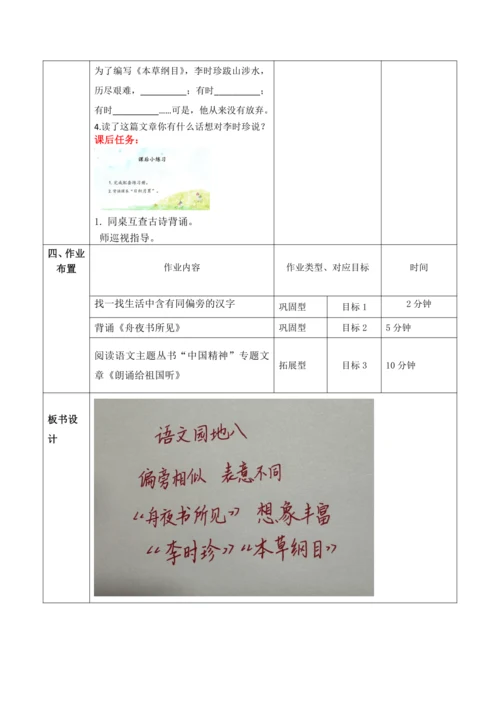 为了编写《本草纲目》，李时珍跋山涉水，
历尽艰难，__________；有时__________；
有时__________……可是，他从来没有放弃。
4.读了这篇文章你有什么话想对李时珍说？
课后任务：
课后小练习
1. 完成配套练习册。
1. 同桌互查古诗背诵。
师巡视指导。
四、作业布置
作业内容 作业类型、对应目标 时间
找一找生活中含有同偏旁的汉字 巩固型 目标 1 2 分钟
背诵《舟夜书所见》 巩固型 目标 2 5 分钟
阅读语文主题丛书“中国精神”专题文
章《朗诵给祖国听》 拓展型 目标 3 10 分钟
板书设计
语文园地八
偏旁相似 表意不同
《舟夜书所见》 想象丰富
《李时珍》《本草纲目》